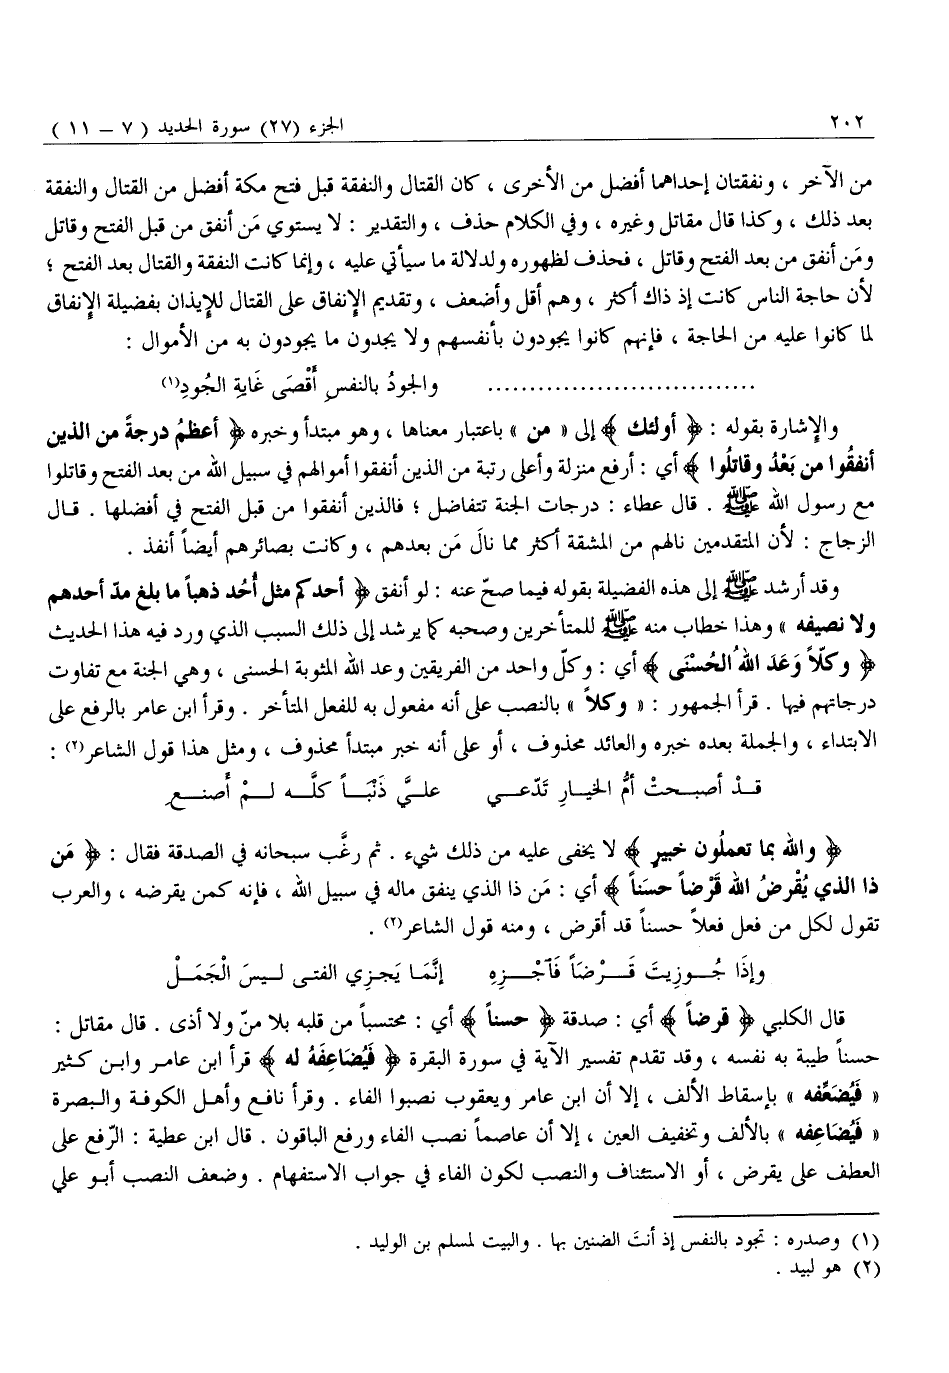 ٢٠٢ الجزء (٢٧) سورة الحديد ( ٧ – ١١ )
من الآخر ، ونفقتان إحداهما أفضل من الأخرى ، كان القتال والنفقة قبل فتح مكة أفضل من القتال والنفقة
بعد ذلك ، وكذا قال مقاتل وغيره ، وفي الكلام حذف ، والتقدير : لا يستوي مَن أنفق من قبل الفتح وقاتل
ومَن أنفق من بعد الفتح وقاتل ، فحذف لظهوره ولدلالة ما سيأتي عليه ، وإنما كانت النفقة والقتال بعد الفتح ؛
لأن حاجة الناس كانت إذ ذاك أكثر ، وهم أقل وأضعف ، وتقديم الإنفاق على القتال للإيذان بفضيلة الإنفاق
لما كانوا عليه من الحاجة ، فإنهم كانوا يجودون بأنفسهم ولا يجدون ما يجودون به من الأموال :
................................ والجودُ بالنفسِ أَقْصَى غَايةِ الجُودِ(١)
والإشارة بقوله : ﴿ أولئك ﴾ إلى « من » باعتبار معناها ، وهو مبتدأ وخبره ﴿ أعظمُ درجةً من الذين
أنفقُوا من بَعْدُ وقاتلُوا ﴾ أي : أرفع منزلة وأعلى رتبة من الذين أنفقوا أموالهم في سبيل الله من بعد الفتح وقاتلوا
مع رسول الله ﷺ . قال عطاء : درجات الجنة تتفاضل ؛ فالذين أنفقوا من قبل الفتح في أفضلها . قال
الزجاج : لأن المتقدمين نالهم من المشقة أكثر مما نالَ مَن بعدهم ، وكانت بصائرهم أيضاً أنفذ .
وقد أرشد ﷺ إلى هذه الفضيلة بقوله فيما صحّ عنه : لو أنفق ﴿ أحدكم مثل أُحُد ذهباً ما بلغ مدّ أحدهم
ولا نصيفه » وهذا خطاب منه ﷺ للمتأخرين وصحبه كما يرشد إلى ذلك السبب الذي ورد فيه هذا الحديث
﴿ وكلّاً وَعَدَ اللهُ الحُسْنَى ﴾ أي : وكلّ واحد من الفريقين وعد الله المثوبة الحسنى ، وهي الجنة مع تفاوت
درجاتهم فيها . قرأ الجمهور : « وكلاً » بالنصب على أنه مفعول به للفعل المتأخر . وقرأ ابن عامر بالرفع على
الابتداء ، والجملة بعده خبره والعائد محذوف ، أو على أنه خبر مبتدأ محذوف ، ومثل هذا قول الشاعر(٢) :
قدْ أصبحتْ أمُّ الخيارِ تَدّعي عليَّ ذَنْبَاً كلَّه لمْ أصنعِ
﴿ والله بما تعملُون خبير ﴾ لا يخفى عليه من ذلك شيء . ثم رغَّب سبحانه في الصدقة فقال : ﴿ مَن
ذا الذي يُقْرضُ اللهَ قَرْضاً حسَناً ﴾ أي : مَن ذا الذي ينفق ماله في سبيل الله ، فإنه كمن يقرضه ، والعرب
تقول لكل من فعل فعلاً حسناً قد أقرض ، ومنه قول الشاعر(٢) .
وإذَا جُوزِيتَ قَرْضَاً فَآجْزِهِ إنَّمَا يَجزِي الفتى ليسَ الْجَمَلْ
قال الكلبي ﴿ قرضاً ﴾ أي : صدقة ﴿ حسناً ﴾ أي : محتسباً من قلبه بلا منّ ولا أذى . قال مقاتل :
حسناً طيبة به نفسه ، وقد تقدم تفسير الآية في سورة البقرة ﴿ فَيُضَاعِفَهُ له ﴾ قرأ ابن عامر وابن كثير
« فَيُضَعِّفه » بإسقاط الألف ، إلا أن ابن عامر ويعقوب نصبوا الفاء . وقرأ نافع وأهل الكوفة والبصرة
« فَيُضَاعِفه » بالألف وتخفيف العين ، إلا أن عاصماً نصب الفاء ورفع الباقون . قال ابن عطية : الرّفع على
العطف على يقرض ، أو الاستئناف والنصب لكون الفاء في جواب الاستفهام . وضعف النصب أبو علي
(١) وصدره : تجود بالنفس إذ أنتَ الضنين بها . والبيت لمسلم بن الوليد .
(٢) هو لبيد .